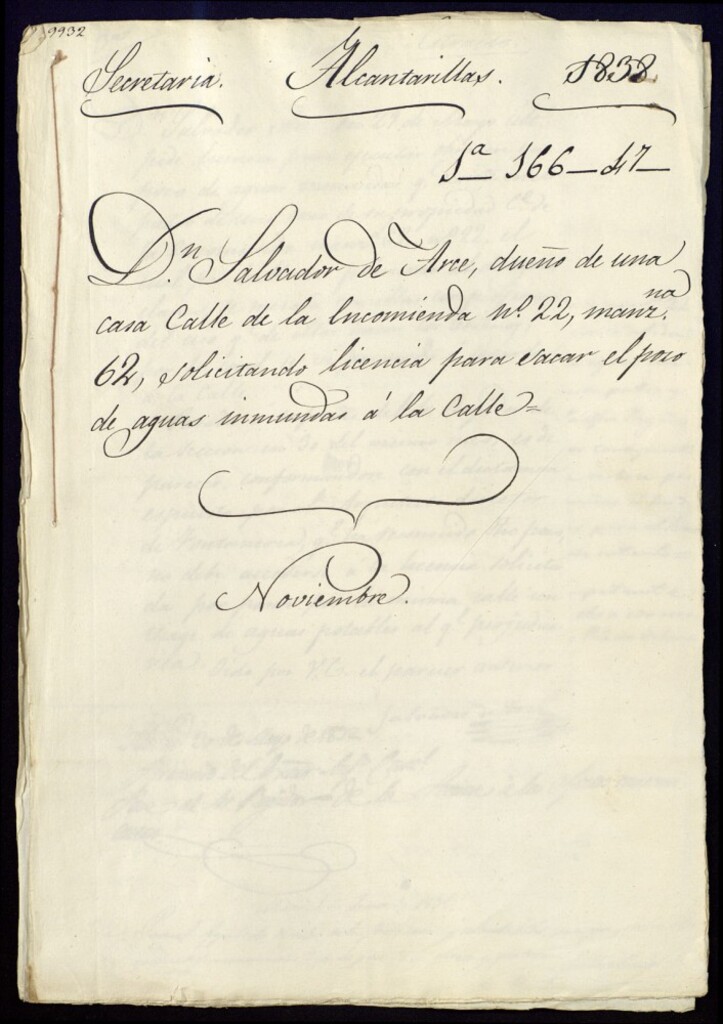 9932
Secretaria. Alcantarillas. 1838
1ª 166-47-
Dn. Salvador de Arce, dueño de una
casa Calle de la Encomienda nº. 22, manz.na
62, solicitando licencia para sacar el pozo
de aguas inmundas á la Calle=
Noviembre.